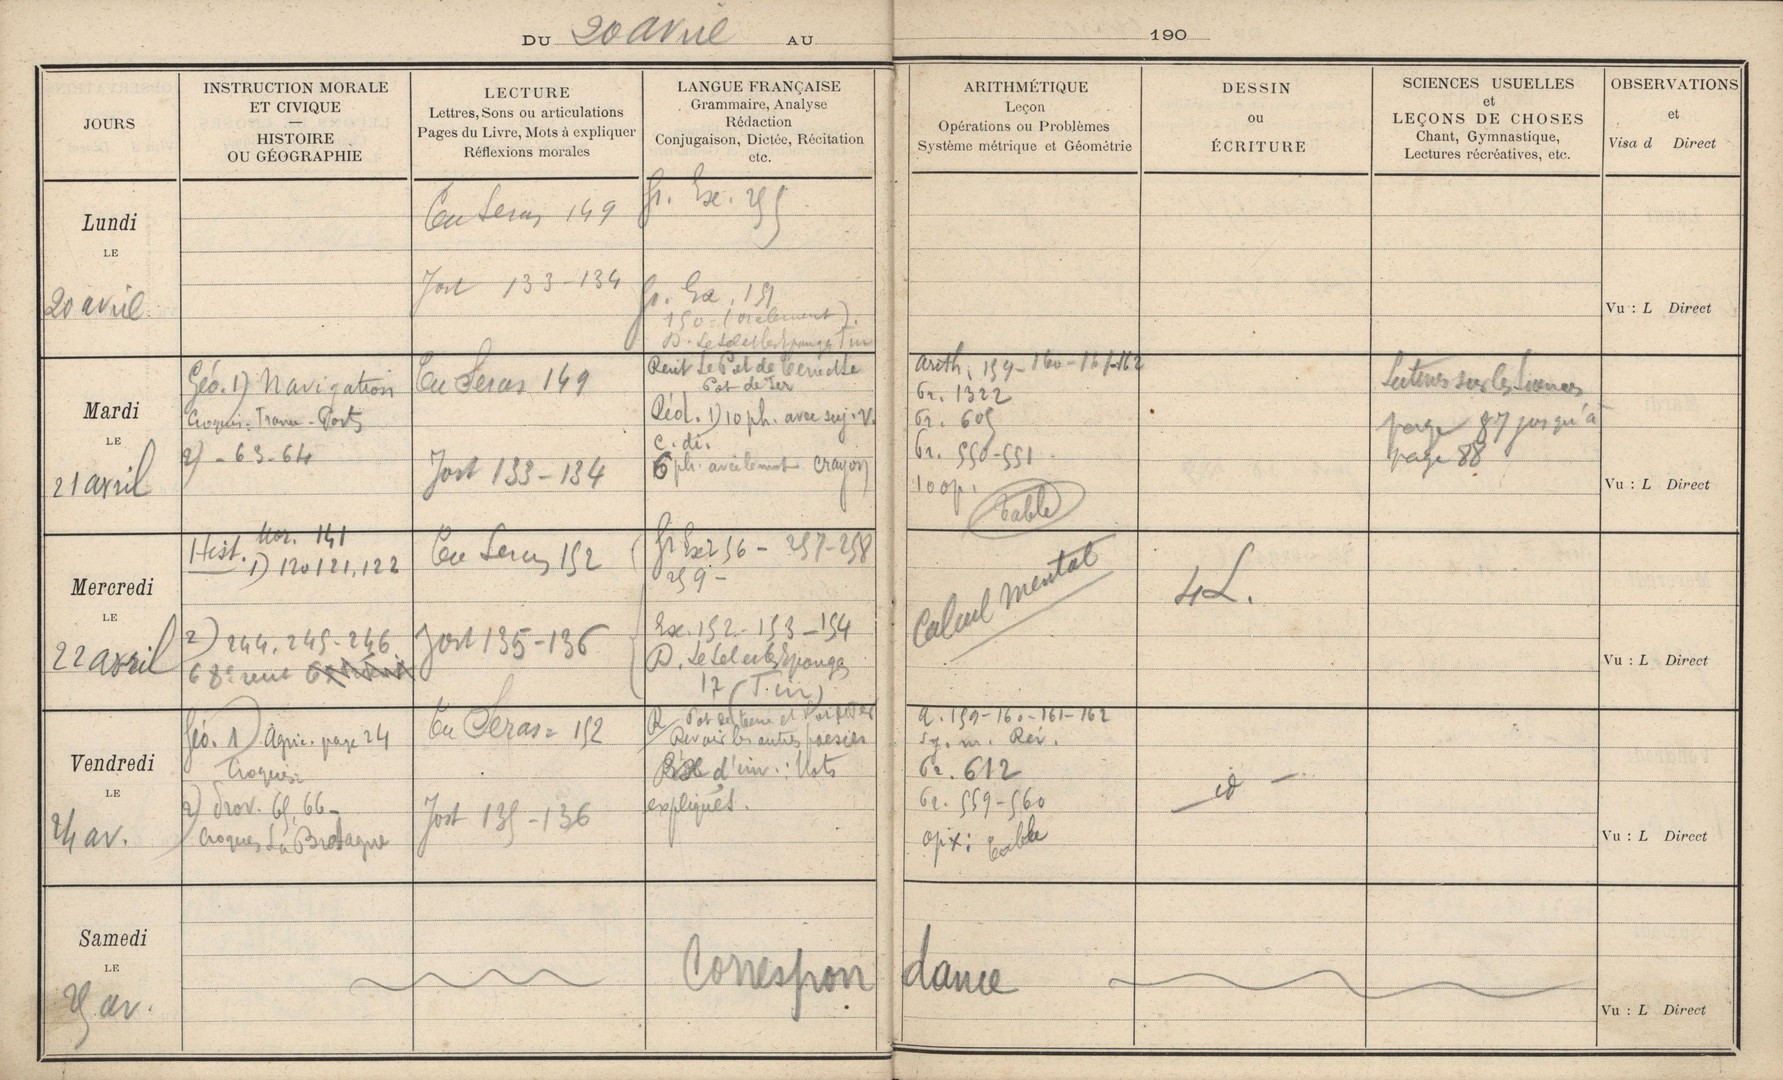 DU 20 avril AU
190
JOURS
INSTRUCTION MORALE
ET CIVIQUE
—
HISTOIRE
OU GÉOGRAPHIE
LECTURE
Lettres, Sons ou articulations
Pages du Livre, Mots à expliquer
Réflexions morales
LANGUE FRANÇAISE
Grammaire, Analyse
Rédaction
Conjugaison, Dictée, Récitation
etc.
ARITHMÉTIQUE
Leçon
Opérations ou Problèmes
Système métrique et Géométrie
DESSIN
ou
ÉCRITURE
SCIENCES USUELLES
et
LEÇONS DE CHOSES
Chant, Gymnastique,
Lectures récréatives, etc.
OBSERVATIONS
et
Visa d Direct
Lundi
LE
20 avril
Tu Seras 149
Jost 133-134
Gr. Ex. 255
Gr. Ex. 151
150 = (oralement).
D. Le Sel et les Eponges
Vu : L Direct
Mardi
LE
21 avril
Géo. 1) Navigation
Croquis: - Ports
2) - 63-64
Tu Seras 149
Jost 133-134
Récit Le Pot de Terre et le
Pot de Fer
Réd. 1) 10 ph. avec suj. v.
c. di.
6 ph. crayon
Arith. 159-160-161-162
Gr. 1322
Gr. 605
Gr. 550-551
100 p.
Table
Lectures sur les Sciences
page 87 jusqu'à
page 88
Vu : L Direct
Mercredi
LE
22 avril
Mor. 141
Hist. 1) 120 121, 122
2) 244. 245-246
68e récit
Tu Seras 152
Jost 135-136
Gr Ex 256 - 257-258
259 -
Ex. 152-153-154
D. Le Sel et les Eponges
17 (Fin)
Calcul mental
4L.
Vu : L Direct
Vendredi
LE
24 av.
Géo. 1) Agric. page 24
Croquis
2) Prov. 65, 66-
Croquis La Bretagne
Tu Seras = 152
Jost 135-136
R Pot de terre et Pot de fer
Revoir les autres poésies
d'inv. : Mots
expliqués.
A. 159-160-161-162
Sy. m. Rév.
Gr. 612
Gr. 559-560
opx: Table
id -
Vu : L Direct
Samedi
LE
25 av.
Correspondance
Vu : L Direct